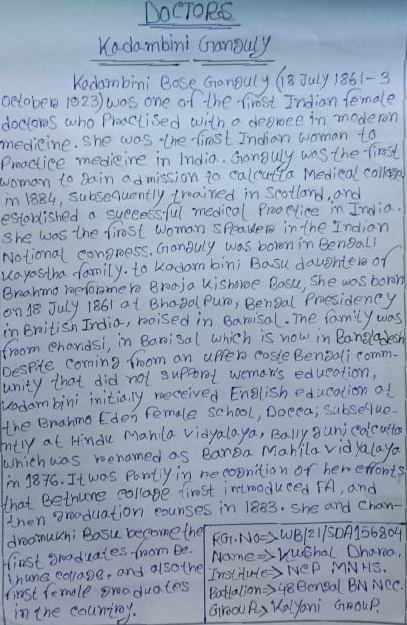 DOCTORS
Kadambini Ganguly
Kadambini Bose Ganguly (18 July 1861-3
October 1923) was one of the first Indian female
doctors who Practised with a degree in modern
medicine. She was the first Indian woman to
Practice medicine in India. Ganguly was the first
woman to gain admission to calcutta Medical college
in 1884, Subsequently trained in Scotland, and
established a successful medical Practice in India.
She was the first woman speaker in the Indian
National congress. Ganguly was born in Bengali
Kayastha family. to Kadambini Basu daughter of
Brahma reformer Braja Kishore Basu, She was born
on 18 July 1861 at Bhagalpur, Bengal Presidency
in British India, raised in Barisal. The family was
from chandsi, in Barisal which is now in Bangladesh
Despite coming from an upper caste Bengali comm-
unity that did not support women's education,
Kadambini initially received English education at
the Brahmo Eden Female School, Dacca; Subseque-
ntly at Hindu Mahila Vidyalaya, Ballygunj calcutta
which was renamed as Banga Mahila vidyalaya
in 1876. It was Partly in recognition of her efforts
that Bethune college first introduced FA, and
then graduation courses in 1883. She and Chan-
dramukhi Basu become the
first graduates from Be-
thune college, and also the
first female graduates
in the country.
RG.No=> WB/21/SDA156804
Name=> Kushal Dhara.
Institute=> NCP MNHS.
Battalion=> 48 Bengal BN NCC.
Group=> Kalyani Group.